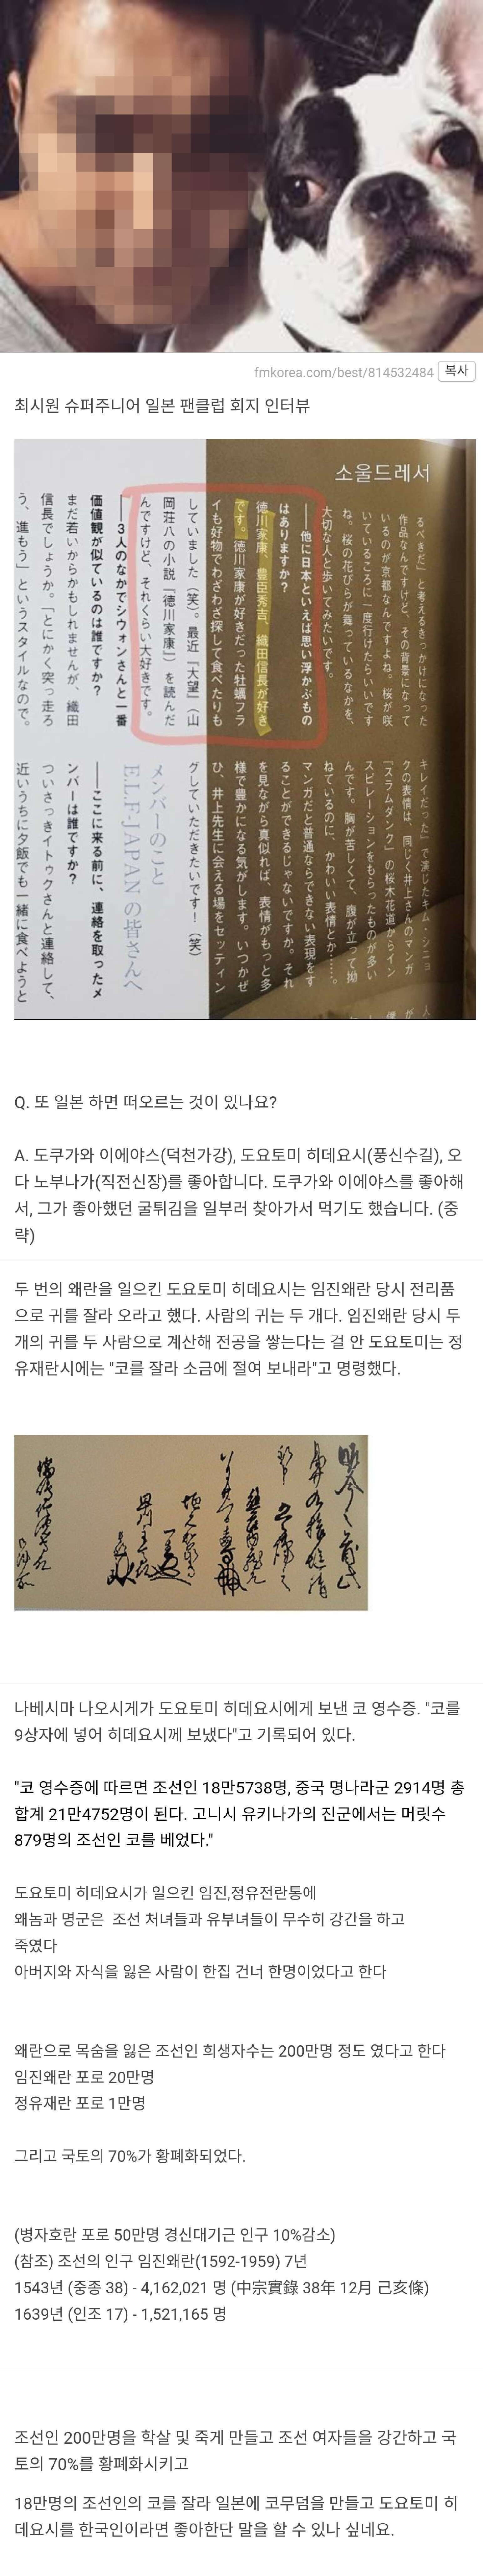 fmkorea.com/best/814532484 복사
최시원 슈퍼주니어 일본 팬클럽 회지 인터뷰
소울드레서
るべきだ」と考えるきっかけになった
作品なんですけど、その背景になって
いるのが京都なんですよね。桜が咲
いているころに一度行けたらいいです
ね。桜の花びらが舞っているなかを、
大切な人と歩いてみたいです。
──他に日本といえば思い浮かぶもの
はありますか?
徳川家康、豊臣秀吉、織田信長が好き
です。徳川家康が好きだった牡蠣フラ
イも好物でわざわざ探して食べたりも
していました(笑)。最近『大望』(山
岡荘八の小説『徳川家康』)を読んだ
んですけど、それくらい大好きです。
──3人のなかでシウォンさんと一番
価値観が似ているのは誰ですか?
まだ若いからかもしれませんが、織田
信長でしょうか。「とにかく突っ走ろ
う、進もう」というスタイルなので。
キレイだった』で演じたキム・シニョ
クの表情は、同じく井上さんのマンガ
『スラムダンク』の桜木花道からイン
スピレーションをもらったものが多い
んです。胸が苦しくて、腹が立って拗
ねているのに、かわいい表情とか……。
マンガだと普通ならできない表現をす
ることができるじゃないですか。それ
を見ながら真似れば、表情がもっと多
様で豊かになる気がします。いつかぜ
ひ、井上先生に会える場をセッティン
グしていただきたいです!(笑)
メンバーのこと
ELF-JAPANの皆さんへ
──ここに来る前に、連絡を取ったメ
ンバーは誰ですか?
ついさっきイトゥクさんと連絡して、
近いうちに夕飯でも一緒に食べようと
Q. 또 일본 하면 떠오르는 것이 있나요?
A. 도쿠가와 이에야스(덕천가강), 도요토미 히데요시(풍신수길), 오
다 노부나가(직전신장)를 좋아합니다. 도쿠가와 이에야스를 좋아해
서, 그가 좋아했던 굴튀김을 일부러 찾아가서 먹기도 했습니다. (중
략)
두 번의 왜란을 일으킨 도요토미 히데요시는 임진왜란 당시 전리품
으로 귀를 잘라 오라고 했다. 사람의 귀는 두 개다. 임진왜란 당시 두
개의 귀를 두 사람으로 계산해 전공을 쌓는다는 걸 안 도요토미는 정
유재란시에는 "코를 잘라 소금에 절여 보내라"고 명령했다.
나베시마 나오시게가 도요토미 히데요시에게 보낸 코 영수증. "코를
9상자에 넣어 히데요시께 보냈다"고 기록되어 있다.
"코 영수증에 따르면 조선인 18만5738명, 중국 명나라군 2914명 총
합계 21만4752명이 된다. 고니시 유키나가의 진군에서는 머릿수
879명의 조선인 코를 베었다."
도요토미 히데요시가 일으킨 임진,정유전란통에
왜놈과 명군은 조선 처녀들과 유부녀들이 무수히 강간을 하고
죽였다
아버지와 자식을 잃은 사람이 한집 건너 한명이었다고 한다
왜란으로 목숨을 잃은 조선인 희생자수는 200만명 정도 였다고 한다
임진왜란 포로 20만명
정유재란 포로 1만명
그리고 국토의 70%가 황폐화되었다.
(병자호란 포로 50만명 경신대기근 인구 10%감소)
(참조) 조선의 인구 임진왜란(1592-1959) 7년
1543년 (중종 38) - 4,162,021 명 (中宗實錄 38年 12月 己亥條)
1639년 (인조 17) - 1,521,165 명
조선인 200만명을 학살 및 죽게 만들고 조선 여자들을 강간하고 국
토의 70%를 황폐화시키고
18만명의 조선인의 코를 잘라 일본에 코무덤을 만들고 도요토미 히
데요시를 한국인이라면 좋아한단 말을 할 수 있나 싶네요.